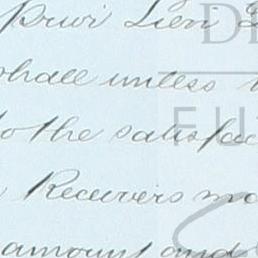 prior Lien
shall unless
to the satisfac
Receivers ma
amount and